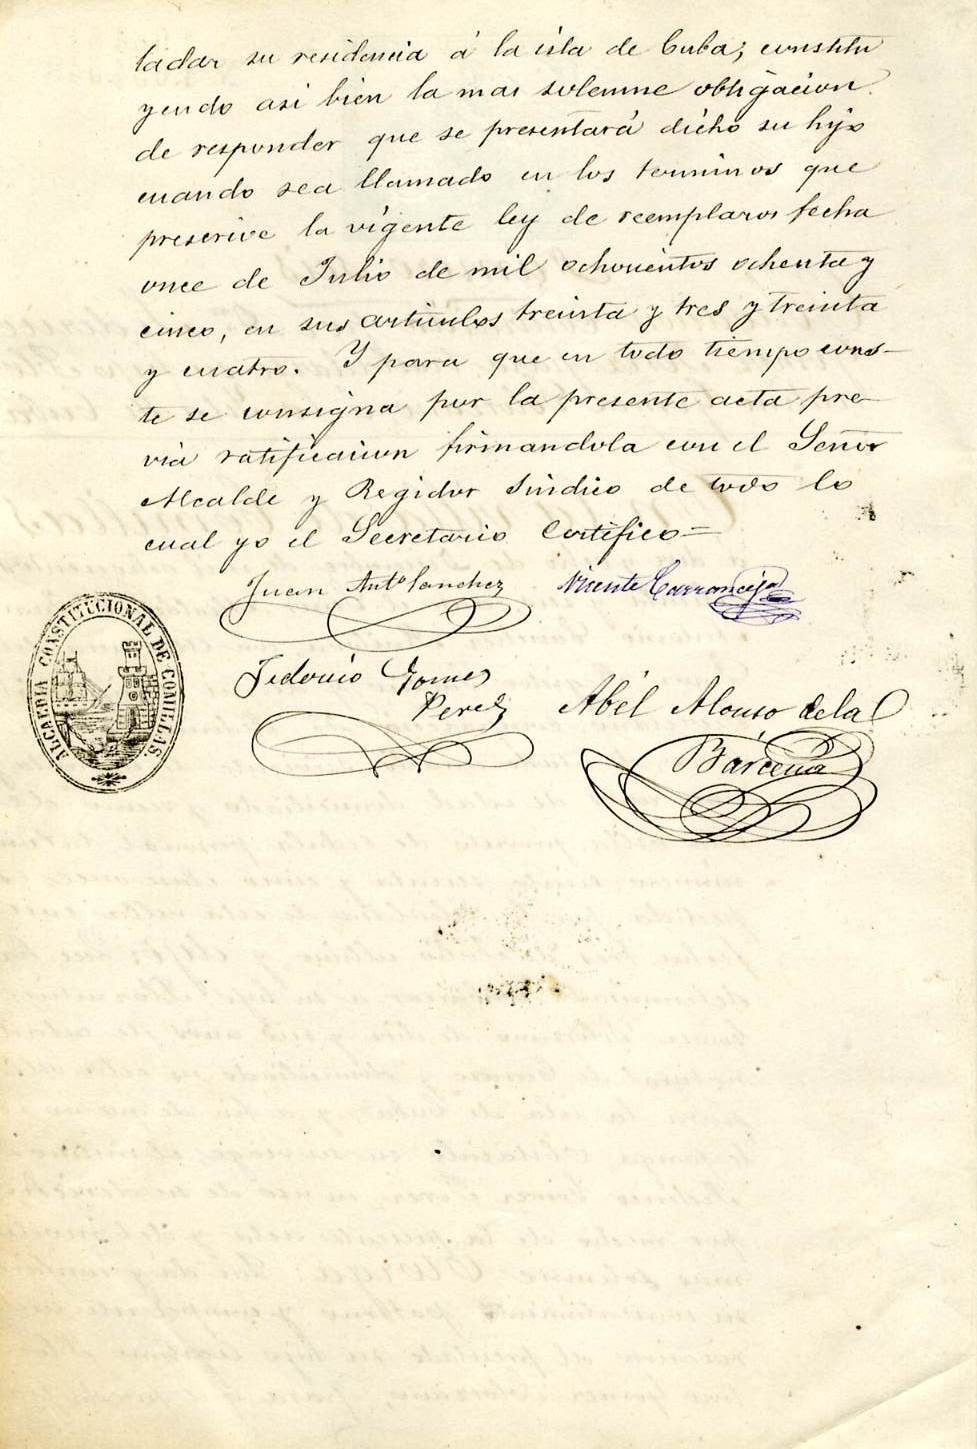 ladar su residencia á la isla de Cuba; constitu
yendo asi bien la mas solemne obligacion
de responder que se presentará dicho su hijo
cuando sea llamado en los terminos que
prescrive la vigente ley de reemplazos fecha
once de Julio de mil ochocientos ochenta y
cinco, en sus articulos treinta y tres y treinta
y cuatro. Y para que en todo tiempo cons-
te se consigna por la presente acta pre-
via ratificacion firmandola con el Señor
Alcalde y Regidor Sindico de todo lo
cual yo el Secretario Certifico=
Juan Antº Sanchez Vicente Carranceja
Fedonio Gomez
Perez
Abél Alonso de la
Bárcena
ALCALDIA CONSTITUCIONAL DE COMILLAS.